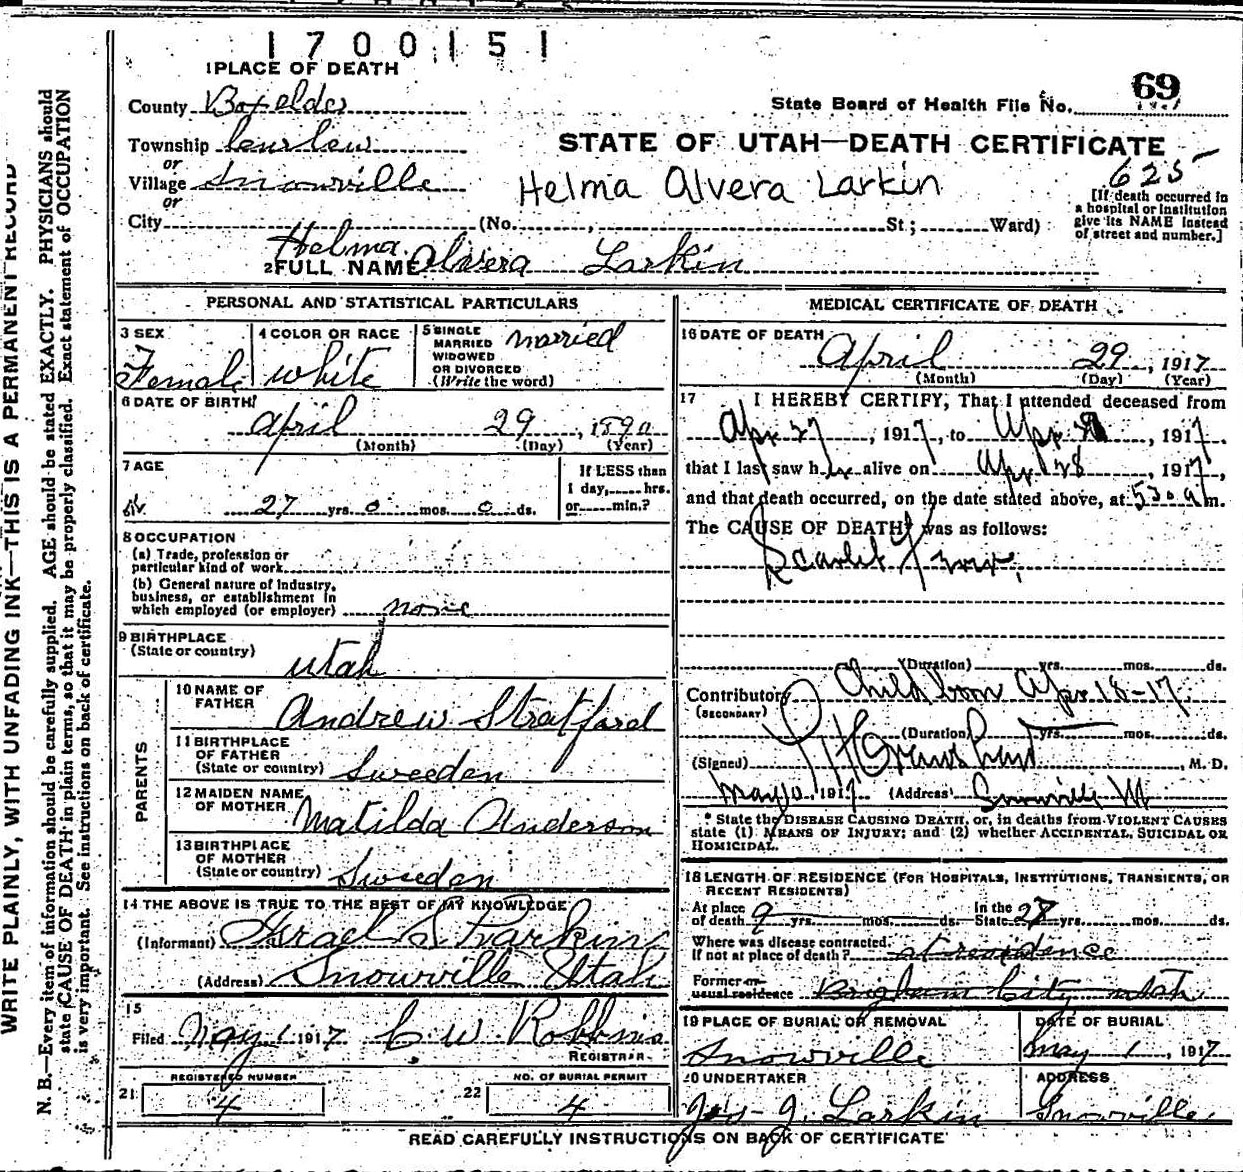 1700151
1 PLACE OF DEATH
69
County Boxelder
State Board of Health File No.
Township Curlew
STATE OF UTAH—DEATH CERTIFICATE
or
Village Snowville
Helma Alvera Larkin
625
or
[If death occurred in
a hospital or institution
give its NAME instead
of street and number.]
City (No. , St; Ward)
Helma
2 FULL NAME Alvera Larkin
PERSONAL AND STATISTICAL PARTICULARS
3 SEX Female
4 COLOR OR RACE white
5 SINGLE
MARRIED
WIDOWED
OR DIVORCED
(Write the word)
married
6 DATE OF BIRTH
April 29, 1890
(Month) (Day) (Year)
7 AGE
27 yrs. 0 mos. 0 ds.
If LESS than
1 day, hrs.
or min.?
8 OCCUPATION
(a) Trade, profession or
particular kind of work
(b) General nature of industry,
business, or establishment in
which employed (or employer) none
9 BIRTHPLACE
(State or country)
Utah
PARENTS
10 NAME OF
FATHER
Andrew Stratford
11 BIRTHPLACE
OF FATHER
(State or country) Sweeden
12 MAIDEN NAME
OF MOTHER
Matilda Anderson
13 BIRTHPLACE
OF MOTHER
(State or country) Sweeden
14 THE ABOVE IS TRUE TO THE BEST OF MY KNOWLEDGE
(Informant) Israel S. Larkin
(Address) Snowville Utah
15
Filed May 1 1917 C W Robbins
REGISTRAR
REGISTERED NUMBER
21 4
NO. OF BURIAL PERMIT
22 4
MEDICAL CERTIFICATE OF DEATH
16 DATE OF DEATH
April 29, 1917
(Month) (Day) (Year)
17 I HEREBY CERTIFY, That I attended deceased from
Apr 27, 1917, to Apr , 1917.
that I last saw her alive on Apr 28, 1917,
and that death occurred, on the date stated above, at 530 a m.
The CAUSE OF DEATH* was as follows:
Scarlet Fever.
(Duration) yrs. mos. ds.
Contributory Child born Apr 18-17
(SECONDARY)
(Duration) yrs. mos. ds.
(Signed) , M. D.
May 1917 (Address) Snowville
* State the DISEASE CAUSING DEATH, or, in deaths from VIOLENT CAUSES
state (1) MEANS OF INJURY; and (2) whether ACCIDENTAL, SUICIDAL OR
HOMICIDAL.
18 LENGTH OF RESIDENCE (FOR HOSPITALS, INSTITUTIONS, TRANSIENTS, OR
RECENT RESIDENTS)
At place
of death 9 yrs. mos. ds.
In the
State 27 yrs. mos. ds.
Where was disease contracted,
If not at place of death? at residence
Former or
usual residence Brigham City Utah
19 PLACE OF BURIAL OR REMOVAL
Snowville
DATE OF BURIAL
May 1, 1917
20 UNDERTAKER
Jos J. Larkin
ADDRESS
Snowville
READ CAREFULLY INSTRUCTIONS ON BACK OF CERTIFICATE
WRITE PLAINLY, WITH UNFADING INK—THIS IS A PERMANENT RECORD
N. B.—Every item of information should be carefully supplied. AGE should be stated EXACTLY. PHYSICIANS should
state CAUSE OF DEATH in plain terms, so that it may be properly classified. Exact statement of OCCUPATION
is very important. See instructions on back of certificate.